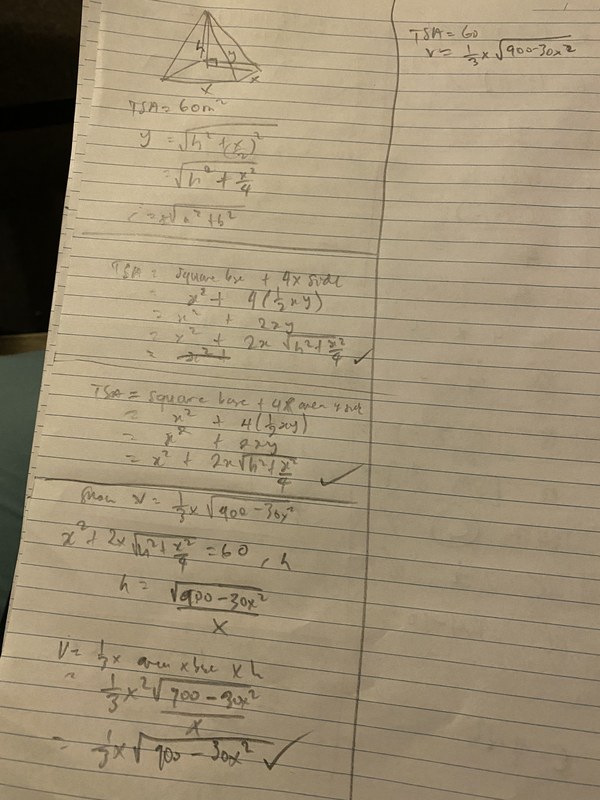 h
y
x
x
TSA = 60m²
y = √(h² + (x/2)²)
= √(h² + x²/4)
TSA = square bse + 4x side
= x² + 4(½xy)
= x² + 2xy
= x² + 2x √(h² + x²/4) ✓
= x² +
TSA = square base + 4x
= x² + 4(½xy)
= x² + 2xy
= x² + 2x√(h² + x²/4) ✓
Show V = ⅓x √(900 - 30x²)
x² + 2x√(h² + x²/4) = 60, h
h = √(900 - 30x²)/x
V = ⅓ x area x bse x h
= ⅓x² √(900 - 30x²)/x
= ⅓x √(900 - 30x²) ✓
TSA = 60
V = ⅓x √(900-30x²)